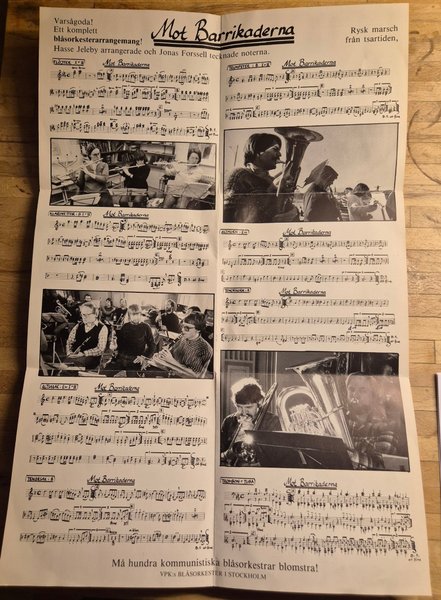 Varsågoda!
Ett komplett
blåsorkesterarrangemang!
Hasse Jeleby arrangerade och Jonas Forssell tecknade noterna.
Mot Barrikaderna
Rysk marsch
från tsartiden,
Mot Barrikaderna
Mot Barrikaderna
Mot Barrikaderna
Mot Barrikaderna
Mot Barrikaderna
Mot Barrikaderna
Mot Barrikaderna
Mot Barrikaderna
Må hundra kommunistiska blåsorkestrar blomstra!
VPK:s BLÅSORKESTER I STOCKHOLM